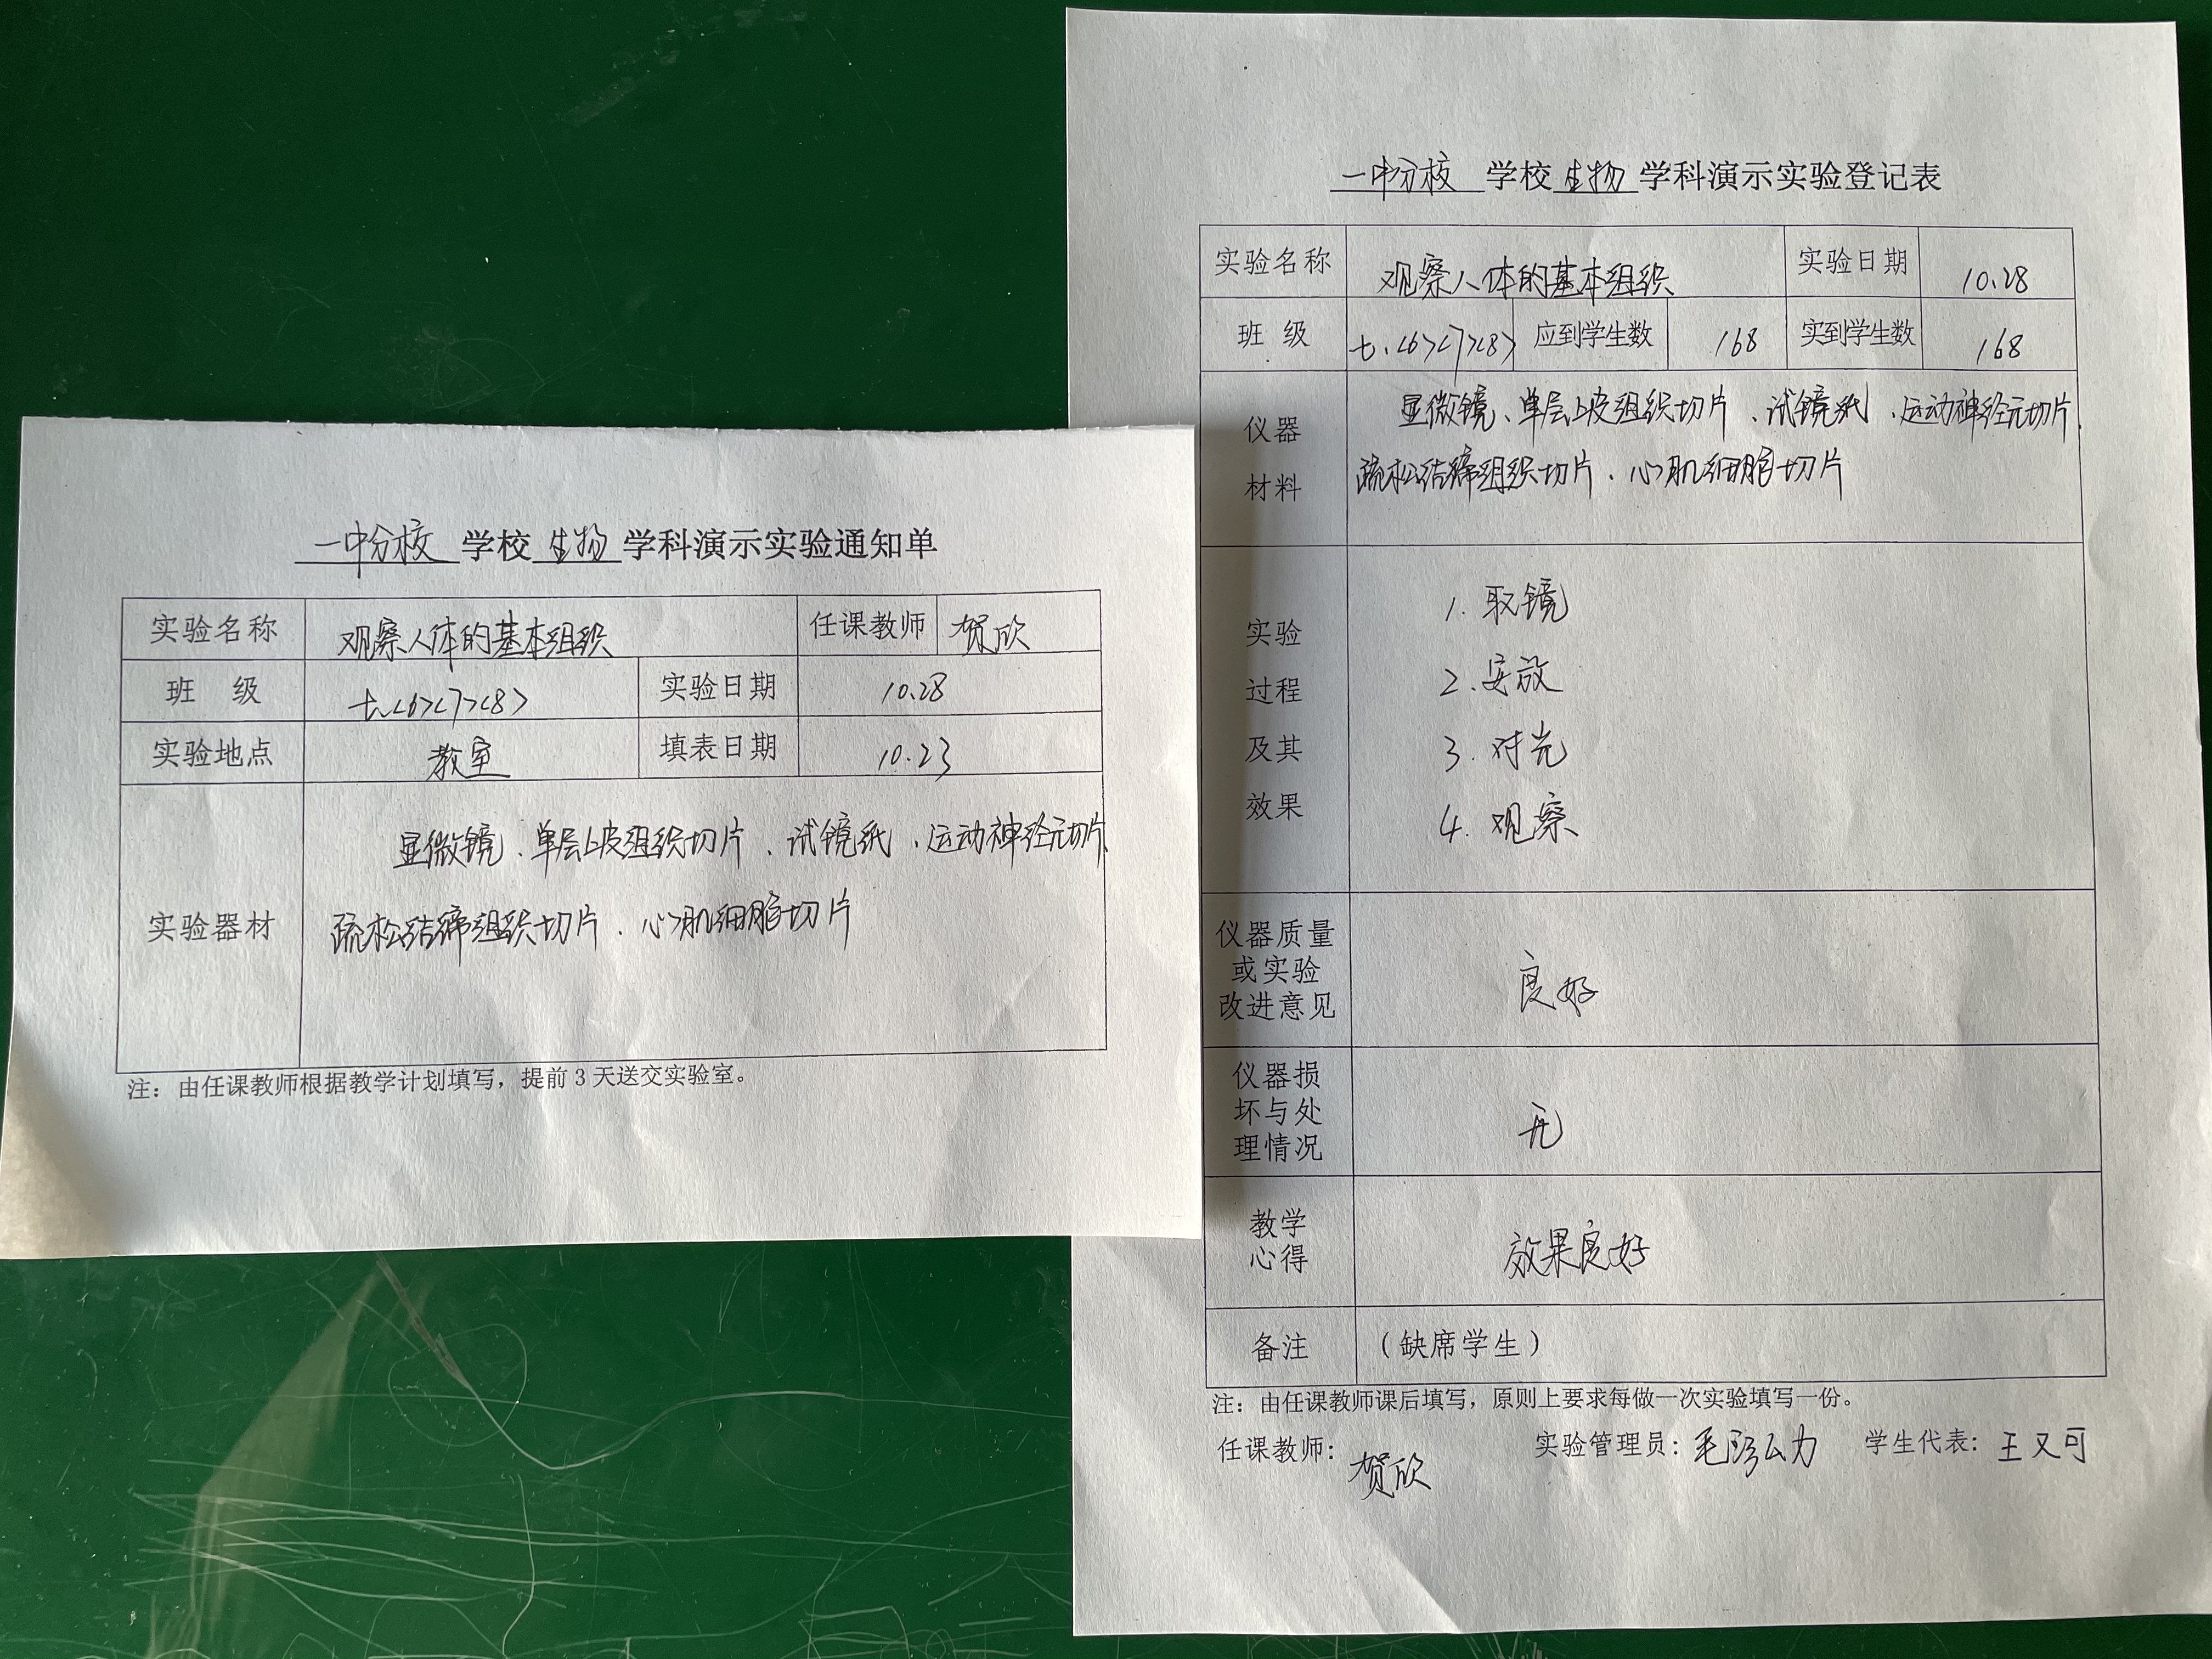 一中分校 学校 生物 学科演示实验通知单
实验名称 观察人体的基本组织 任课教师 贺欣
班 级 七.<6><7><8> 实验日期 10.28
实验地点 教室 填表日期 10.23
实验器材
显微镜、单层上皮组织切片、试镜纸、运动神经元切片、
疏松结缔组织切片、心肌细胞切片
注：由任课教师根据教学计划填写，提前 3 天送交实验室。
一中分校 学校 生物 学科演示实验登记表
实验名称 观察人体的基本组织 实验日期 10.28
班 级 七.<6><7><8> 应到学生数 168 实到学生数 168
仪器
材料
显微镜、单层上皮组织切片、试镜纸、运动神经元切片、
疏松结缔组织切片、心肌细胞切片
实验
过程
及其
效果
1. 取镜
2. 安放
3. 对光
4. 观察
仪器质量
或实验
改进意见
良好
仪器损
坏与处
理情况
无
教学
心得
效果良好
备注 （缺席学生）
注：由任课教师课后填写，原则上要求每做一次实验填写一份。
任课教师：贺欣 实验管理员： 学生代表：王又可